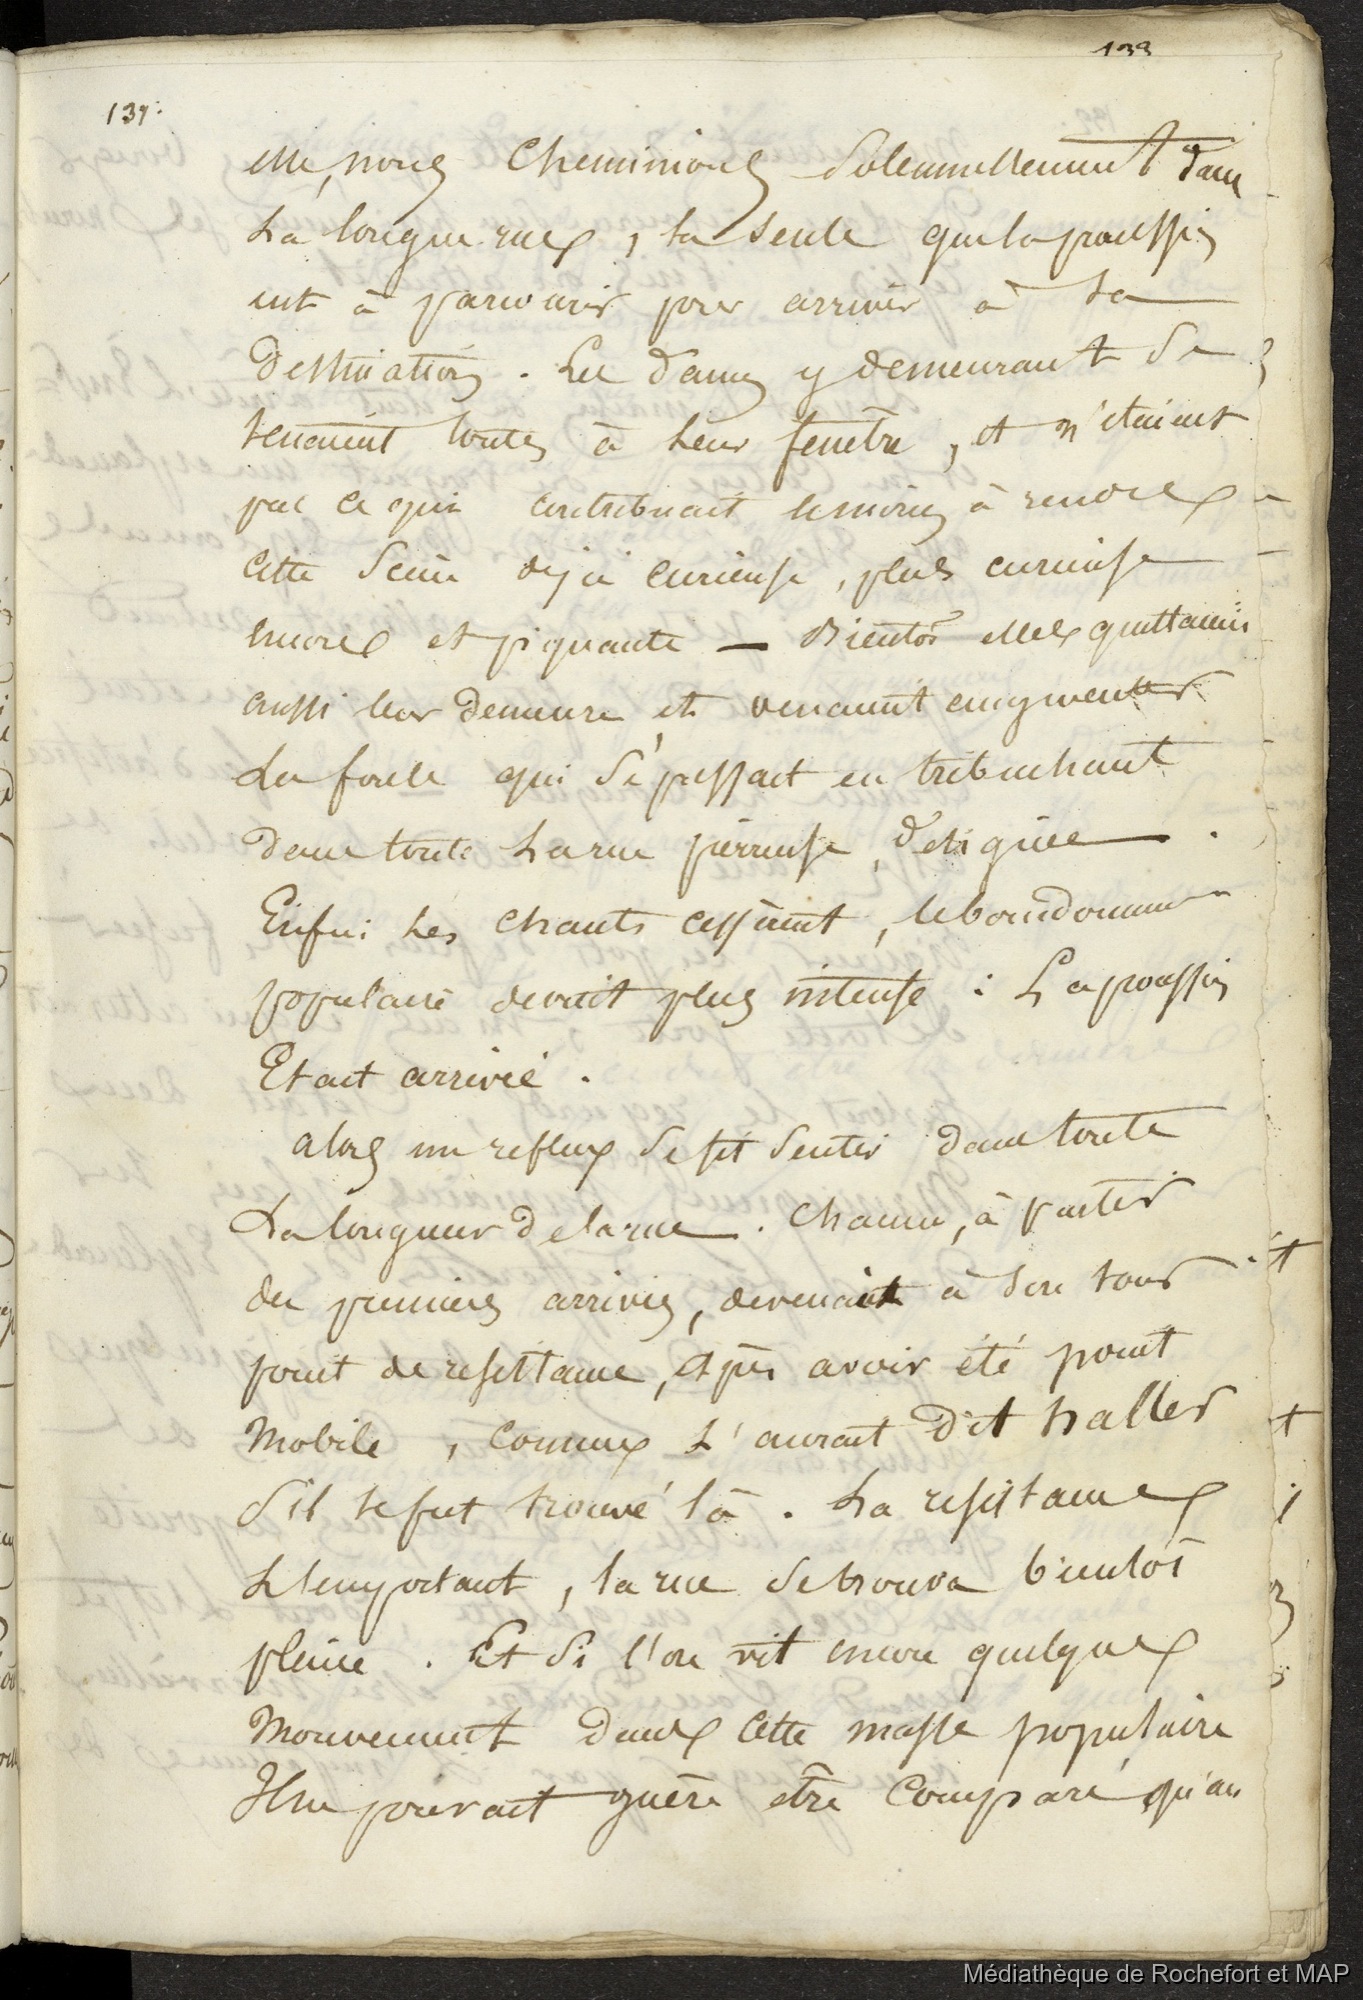 133
131.
elle, nous cheminions solennellement dans
La longue rue, la seule que la procession
eut à parcourir pour arriver à sa
destination. Les dames y demeurant se
tenaient toutes à leur fenêtre, et n'étaient
pas ce qui contribuait le moins à rendre
cette scène déjà curieuse, plus curieuse
encore et piquante — Bientôt elles quittaient
aussi leur demeure et venaient augmenter
La foule qui se pressait en trébuchant
dans toute La rue pierreuse,
Enfin Les chants cessèrent, le bourdonnement
populaire devint plus intense : La procession
Etait arrivée.
alors un reflux se fit sentir dans toute
La longueur de la rue. Chacun, à partir
des premiers arrivés, devenait à son tour
point de resistance, après avoir été point
Mobile, comme L'aurait dit haller
s'il se fut trouvé là. La resistance
L'emportant, la rue se trouva bientôt
pleine. Et si l'on vit encore quelque
Mouvement dans cette masse populaire
Il ne pouvait guère être comparé qu'au
Médiathèque de Rochefort et MAP